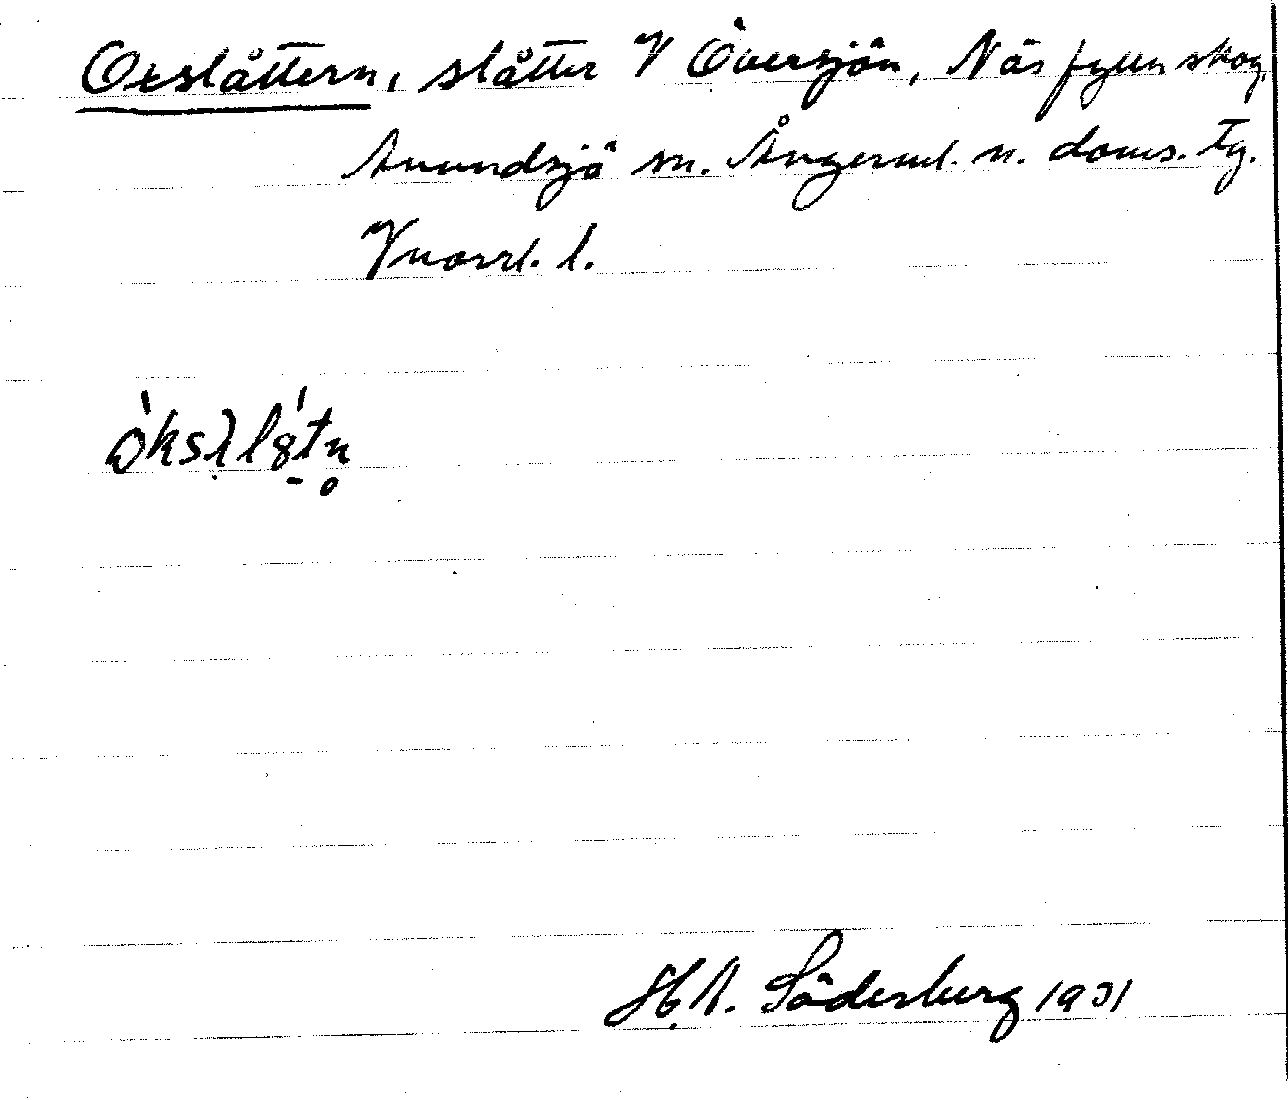 Oxslåttern, slåtter V Översjön, Näs fyllen skog,
Anundsjö sn. Ångerml. n. doms. tg.
Vnorrl. l.
H.A. Söderberg 1931